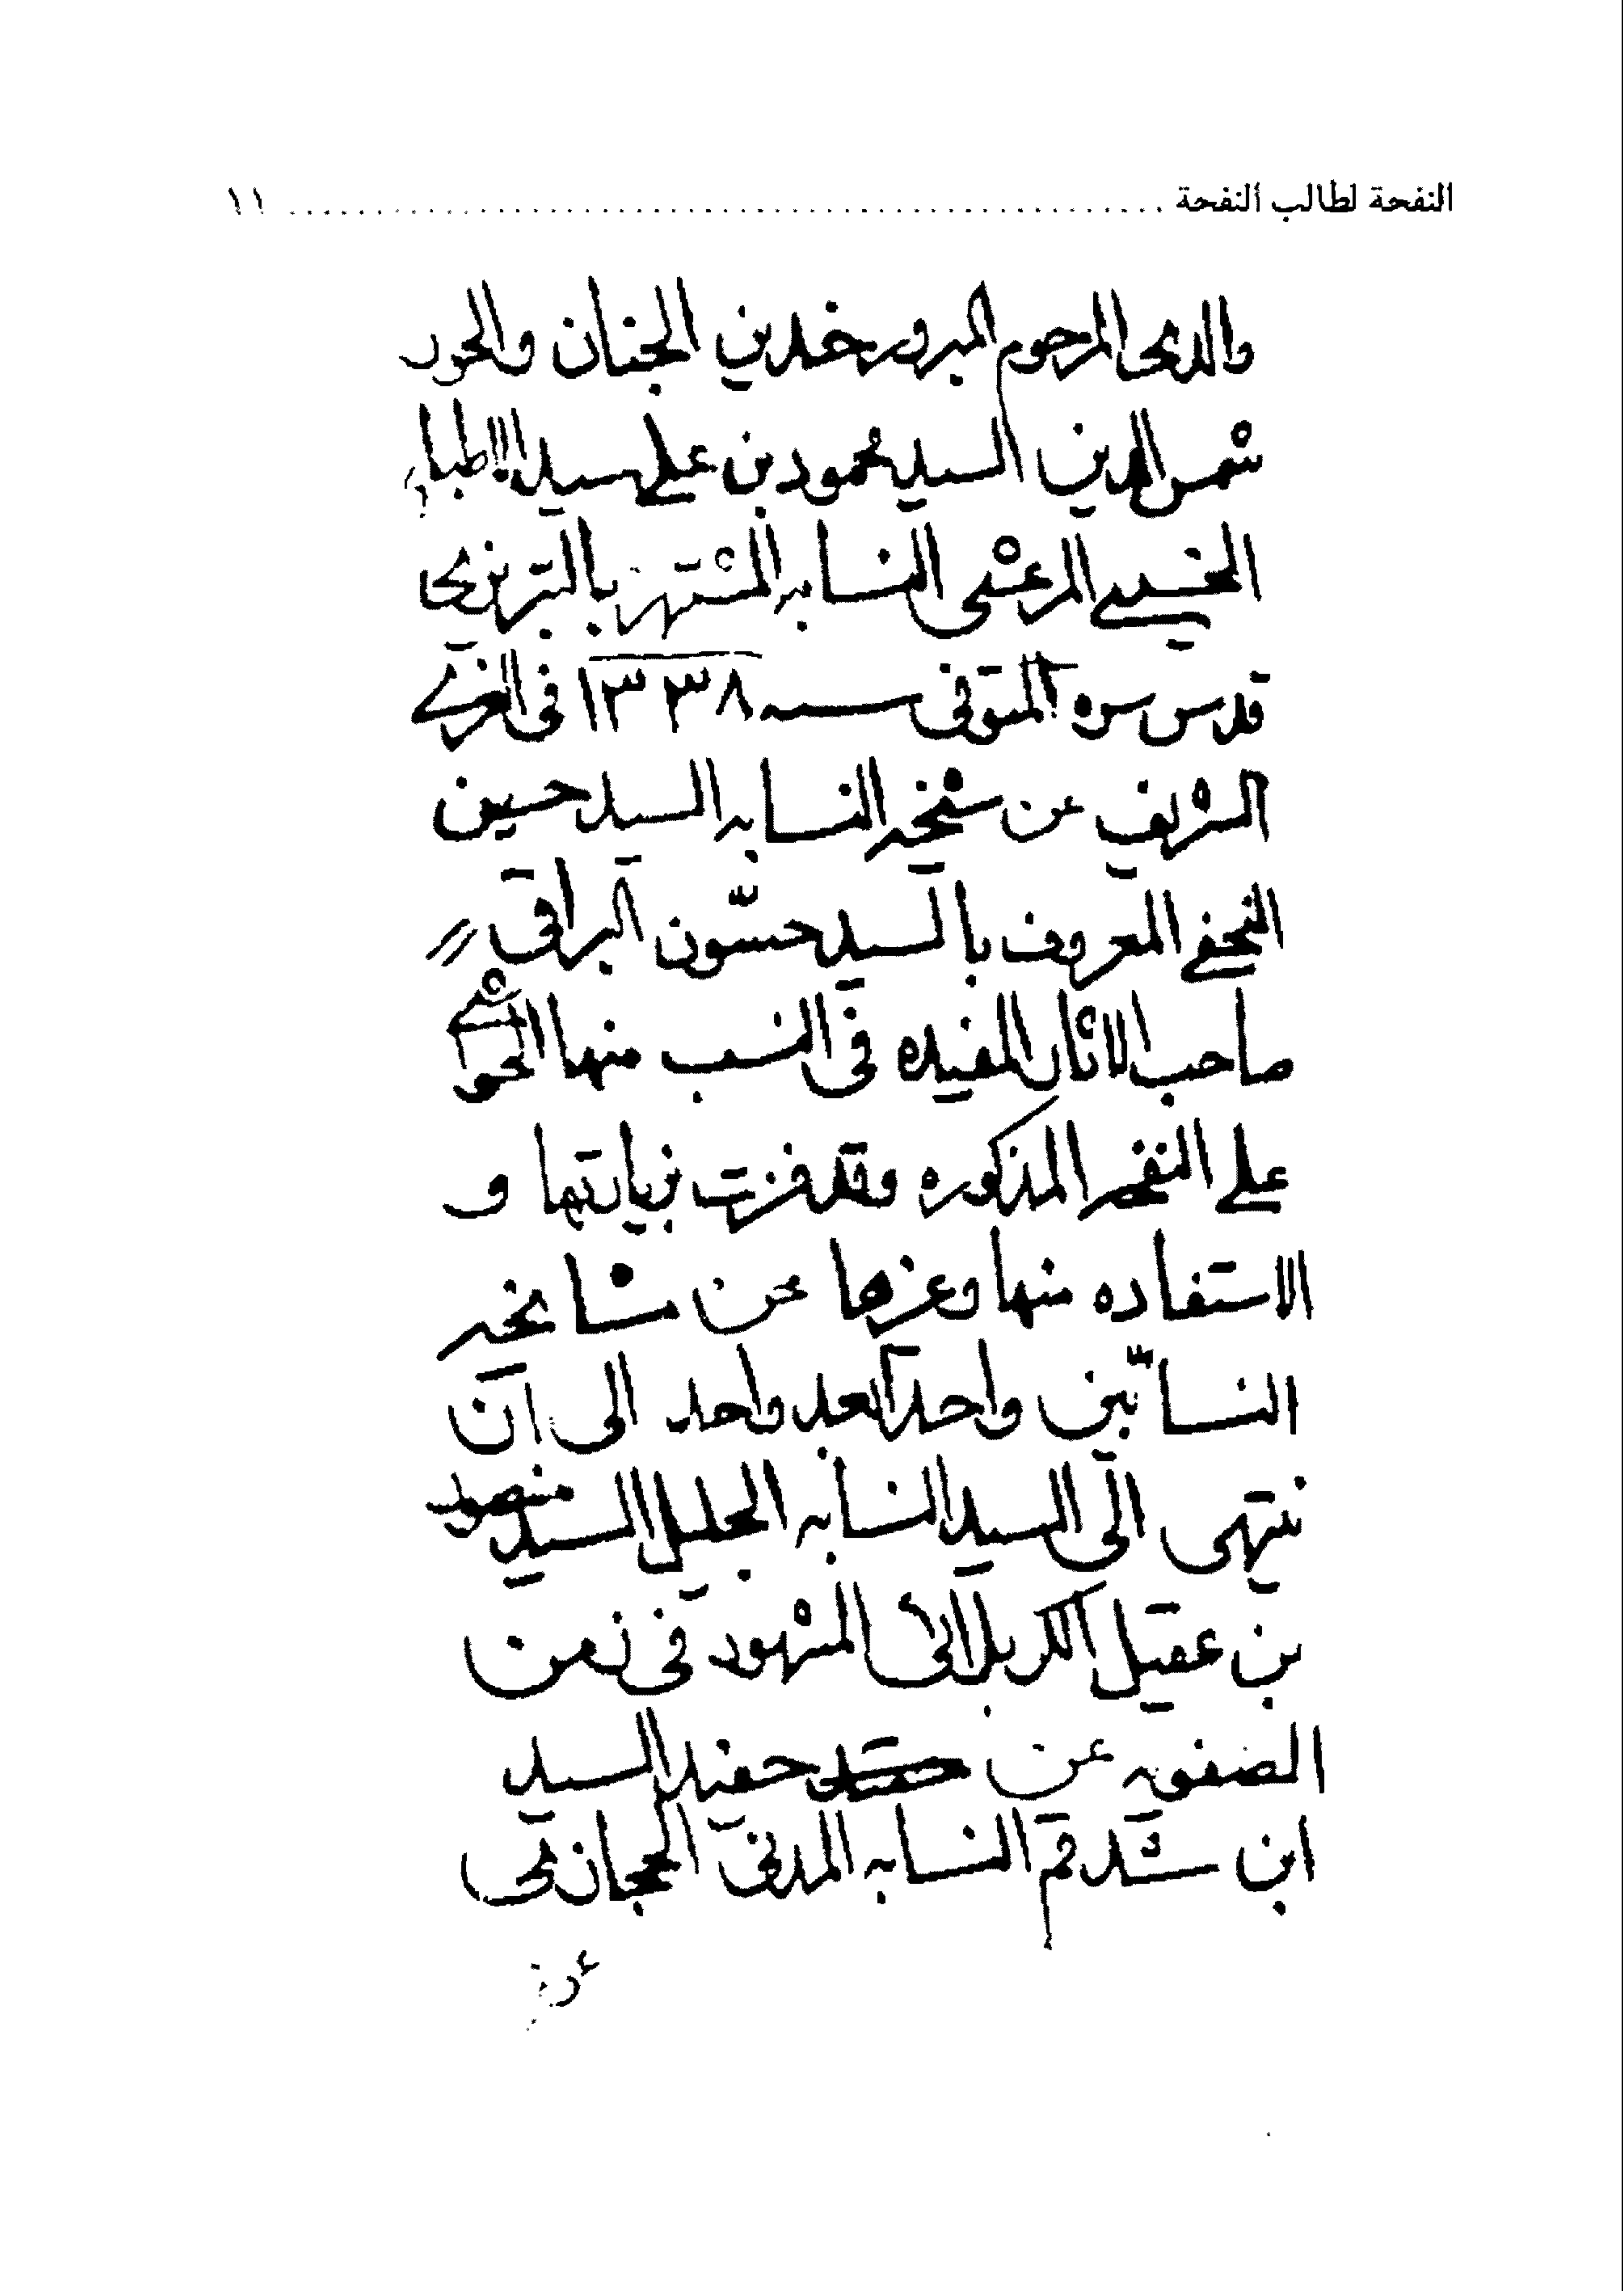 النفحة لطالب النفحة ........................ ١١
والدي المرحوم المبرور خدين الجنان والحور
شمس الدين السيد محمود بن علي سيد الاطباء
الحسيني المرعشي النسابه المشتهر بالتبريزي
قدس سره المتوفى سنه ١٣٣٨ في الغري
الشريف عن شيخه النسابه السيد حسين
النجفي المعروف بالسيد حسّون البراقي
صاحب الاثار المفيده في النسب منها الحواشي
على النفحه المذكوره وقد فزت بزيارتها و
الاستفاده منها وغيرها عن مشايخه
النسابّين واحداً بعد واحد الى ان
ننتهى الى السيد النسابه الجليل السيد منصور
بن عقيل الكربلائي المشهود في زمن
الصفويه عن حفيد السيد
ابن شدقم النسابه المدني الحجازي
عن